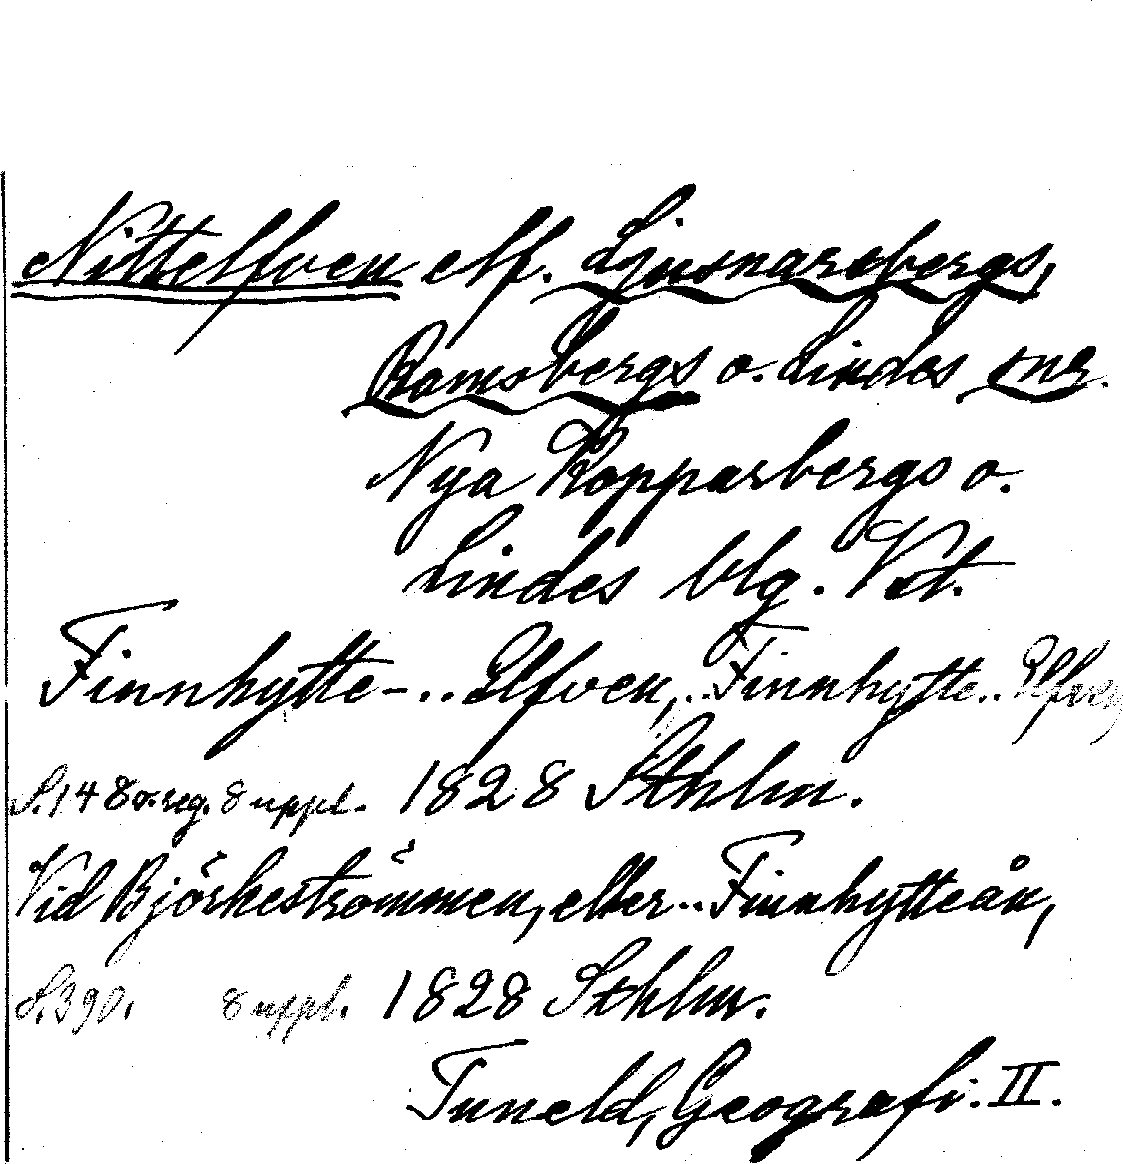 Nittelfven elf. Ljusnarsbergs,
Ramsbergs o. Lindes snr.
Nya Kopparbergs o.
Lindes blg. Vst.
Finnhytte-.. Elfven, ..Finnhytte.. Elfven,
S.148 o. reg. 8 uppl. 1828 Sthlm.
Vid Björkeströmmen, eller.. Finnhytteån,
S.390. 8 uppl. 1828 Sthlm.
Tuneld, Geografi. II.